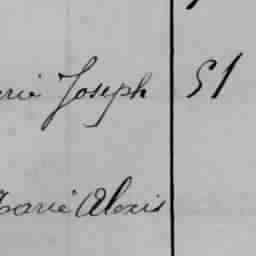 rie Joseph 51
Marie Alexis